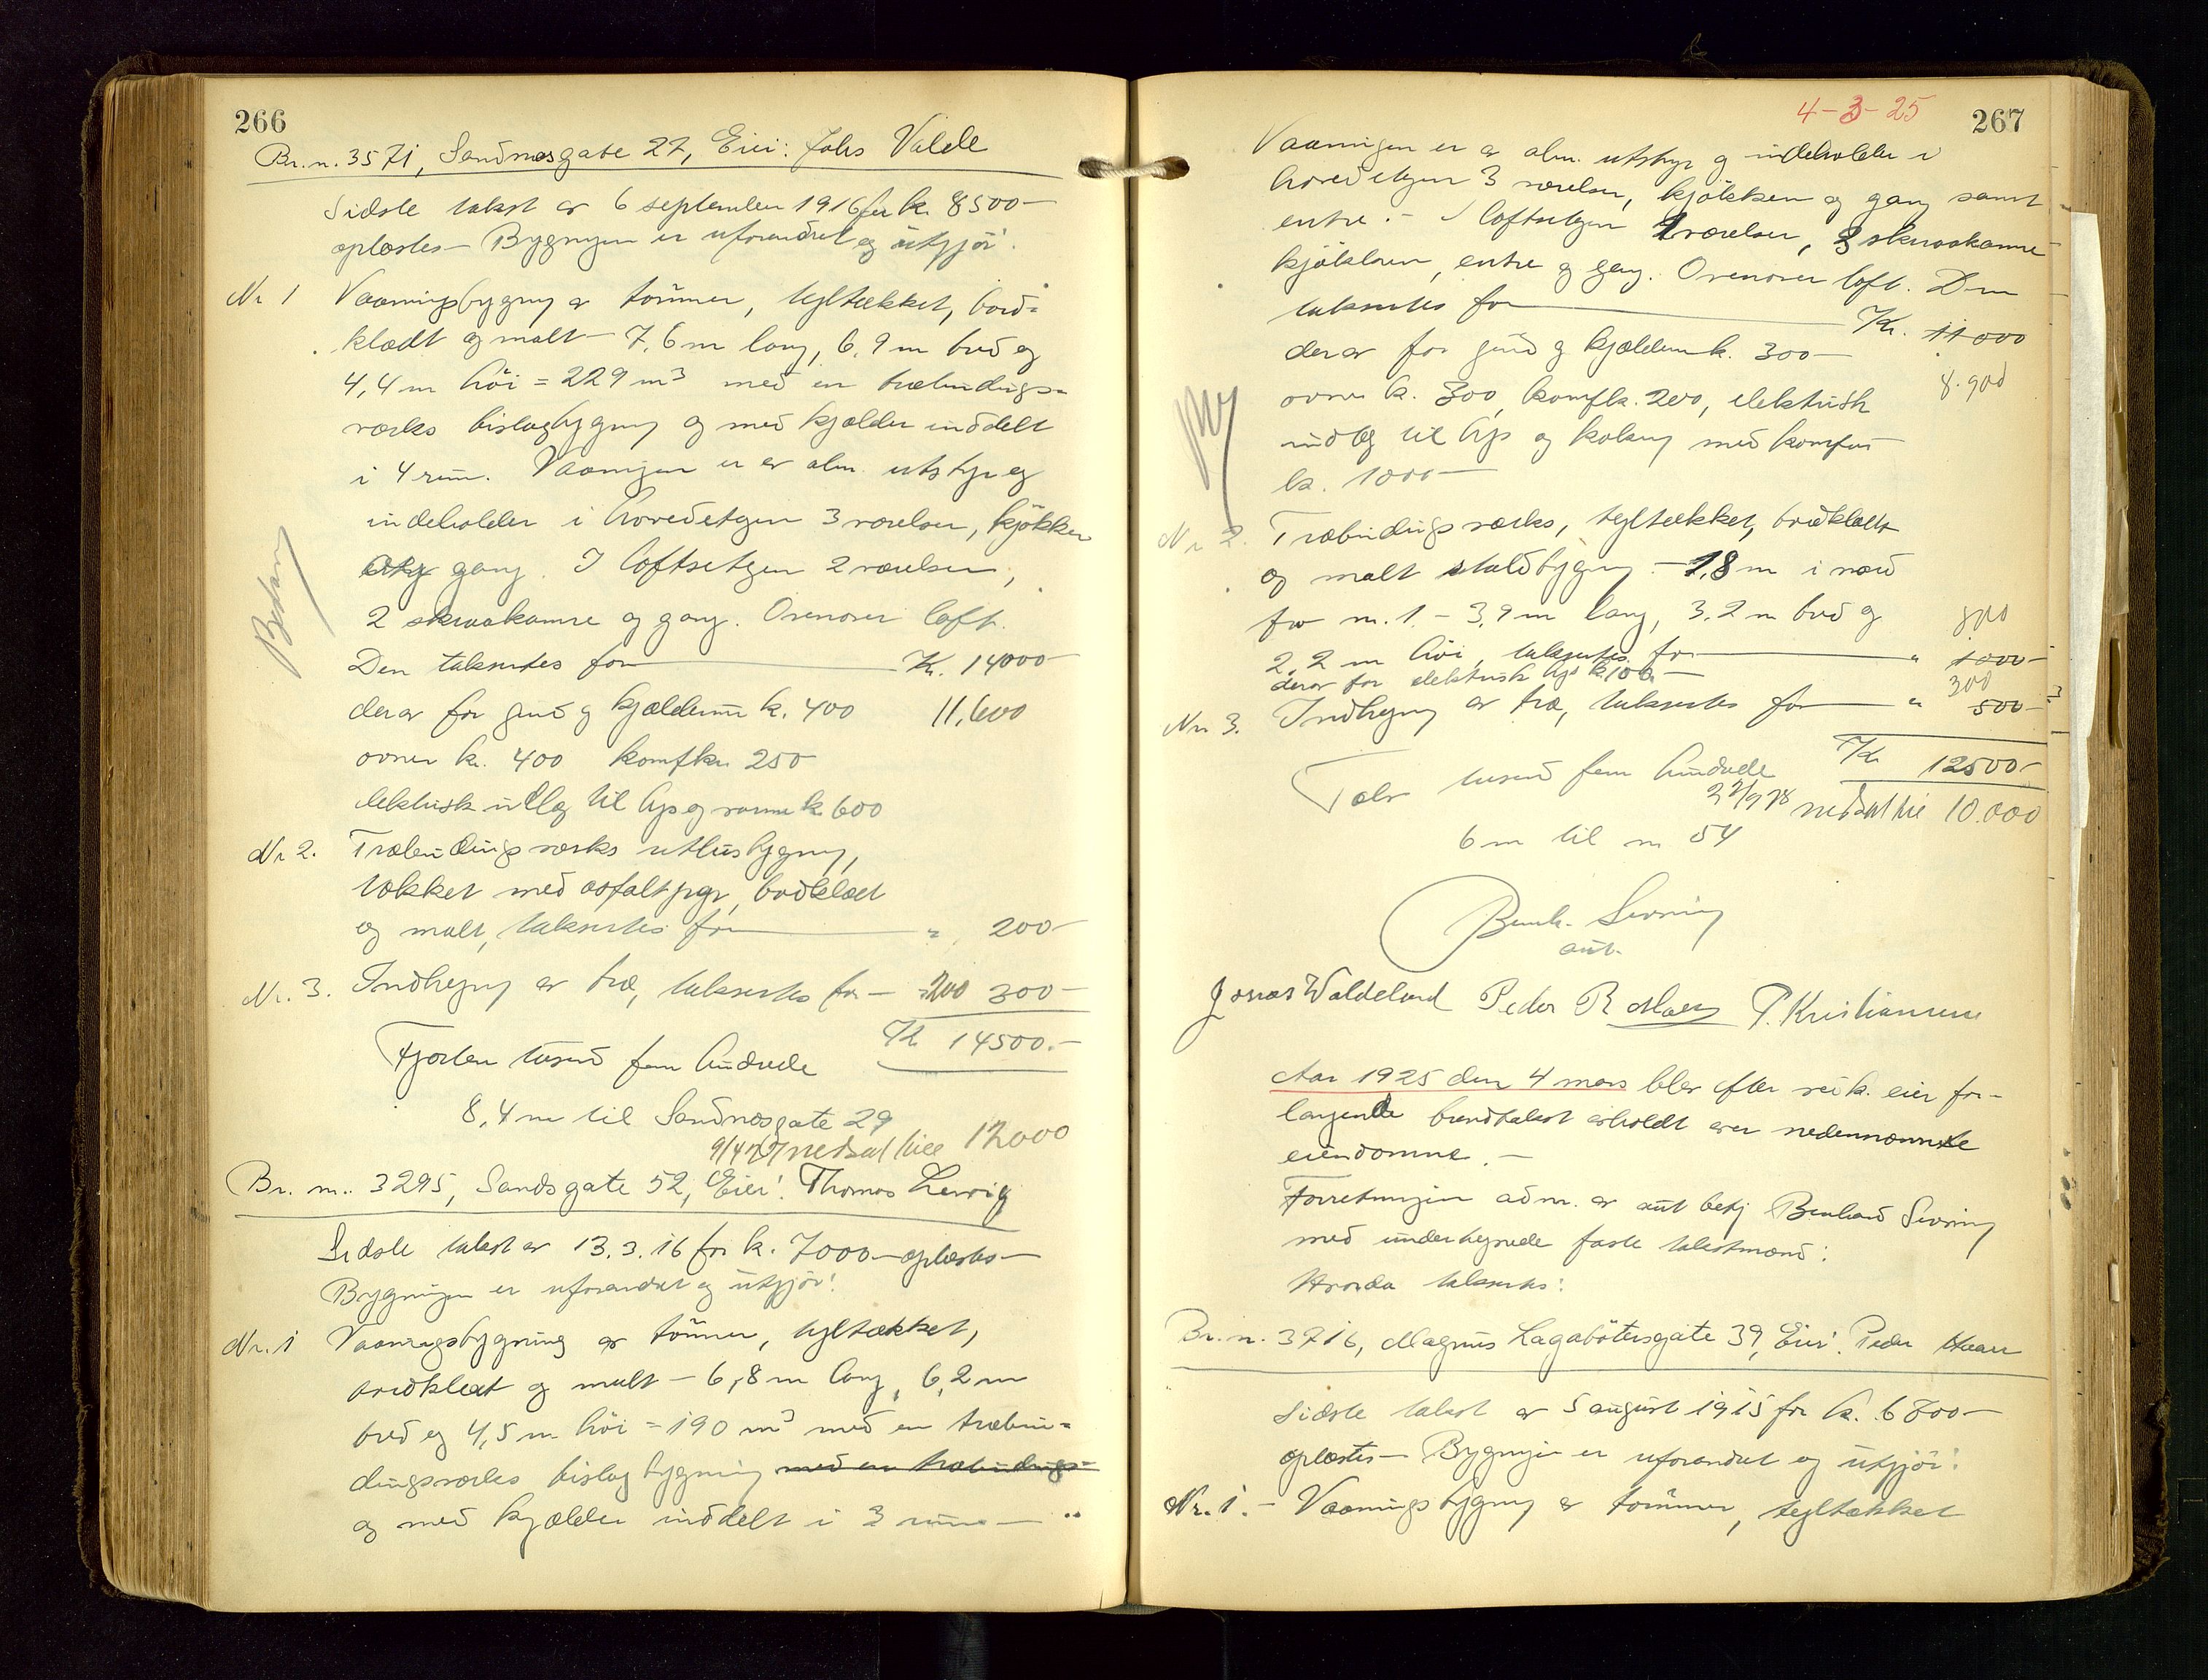 266
Br. n. 3571, Sandnæsgate 27, Eier: Johs Valde
Sidste takst av 6 september 1916 for kr. 8500-
oplæstes - Bygningen er uforandret og utgjør:
Nr 1 Vaaningsbygning av tømmer, tegltækket, bord-
klædt og malt - 7,6 m lang, 6,9 m bred og
4,4 m høi = 229 m³ med en træbindings-
værks bislagbygning og med kjælder inddelt
i 4 rum. Vaaningen er av alm. utstyr og
indeholder i hovedetagen 3 værelser, kjøkken
og gang. I loftsetagen 2 værelser,
2 skraakamre og gang. Ovenover loft.
Den takseres for Kr. 14000-
derav for grund og kjældermur kr. 400 11,600
ovner kr. 400 komfkr 250
elektrisk indlæg til lys og varme kr 600
Nr 2. Træbindingsværks uthusbygning,
tækket med asfaltpap, bordklædt
og malt, takseres for " 200-
Nr. 3. Indhegning av træ, takseres for - 200 300-
Kr 14500.-
Fjorten tusind fem hundrede
8,4 m til Sandnæsgate 29
9/4 27 nedsat till 12000
Bedam
Br. nr. 3295, Sandsgate 52, Eier: Thomas Lervig
Sidste takst av 13.3.16 for kr. 7000- oplæstes-
Bygningen er uforandret og utgjør:
Nr. 1 Vaaningsbygning av tømmer, tegltækket,
bordklædt og malt - 6,8 m lang, 6,2 m
bred og 4,5 m høi = 190 m³ med en træbin-
dingsværks bislagbygning med en træbindings-
og med kjælder inddelt i 3 rum -
4-3-25
267
Vaaningen er av alm. utstyr og indeholder i
hovedetagen 3 værelser, kjøkken og gang samt
entre. - I loftsetagen 2 værelser, 3 skraakamre
kjøkken, entre og gang. Ovenover loft. Den
takseres for Kr. 11000
derav for grund og kjældermur k. 300-
8.900
ovner k. 300, komfkr. 200, elektrisk
indlæg til lys og kokning med komfur
kr. 1000-
Nr 2. Træbindingsværks, tegltækket, bordklædt
og malt staldbygning - 1,8 m i nord
for nr. 1 - 3,9 m lang, 3,2 m bred og
800
2,2 m høi, takseres for " 1000-
derav for elektrisk lys kr. 100.-
300
Nr. 3. Indhegning av træ, takseres for " 500-
Kr 12500-
Tolv tusind fem hundrede
22/9 28 nedsat til 10.000
6 m til nr 54
Bernh. Sevning
aut.
Jonas Waldeland Peder R Maan P. Kristiansen
Aar 1925 den 4 mars blev efter rek. eier for-
langende brandtakst avholdt over nedennævnte
eiendomme. -
Forretningen adm. av aut betj Bernhard Sevning
med undertegnede faste takstmænd:
Hvorda takseres:
Br. n. 3716, Magnus Lagabøtersgate 39, Eier: Peder Haaer
Sidste takst av 5 august 1915 for kr. 6800-
oplæstes - Bygningen er uforandret og utgjør:
Nr. 1. - Vaaningsbygning av tømmer, tegltækket